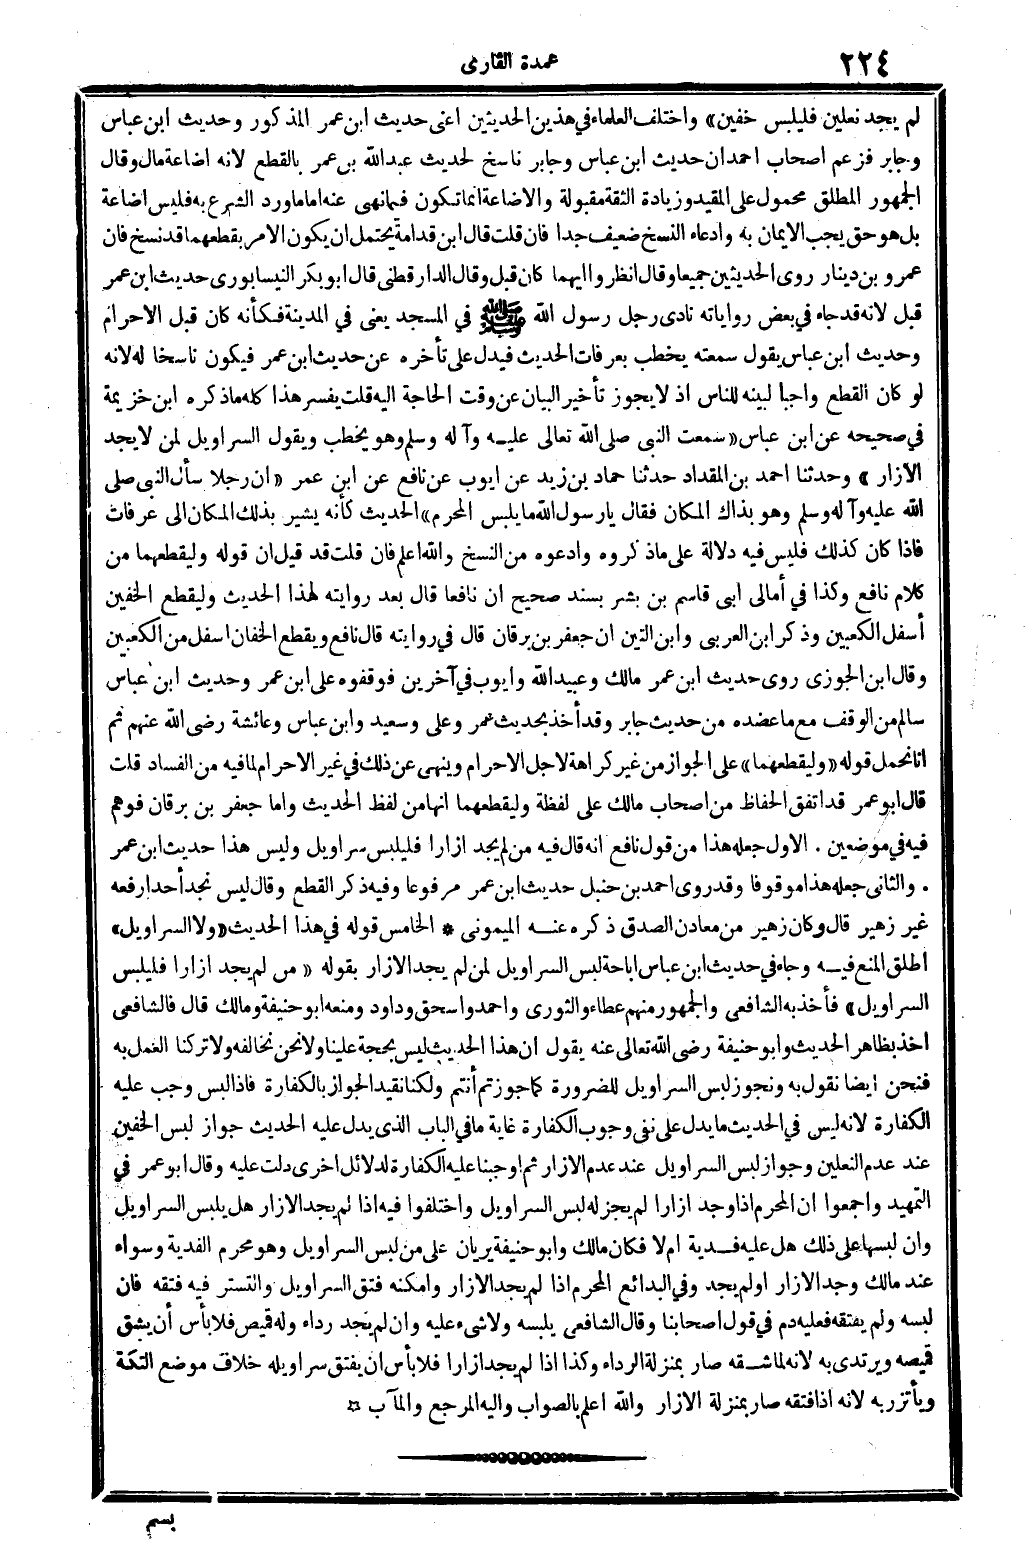 ٢٢٤
عمدة القارى
لم يجد نعلين فليلبس خفين» واختلف العلماء في هذين الحديثين اعنى حديث ابن عمر المذكور وحديث ابن عباس
وجابر فزعم اصحاب احمد ان حديث ابن عباس وجابر ناسخ لحديث عبد الله بن عمر بالقطع لانه اضاعة مال وقال
الجمهور المطلق محمول على المقيد وزيادة الثقة مقبولة والاضاعة انما تكون فيما نهى عنه اما ما ورد الشرع به فليس اضاعة
بل هو حق يجب الايمان به وادعاء النسخ ضعيف جدا فان قلت قال ابن قدامة يحتمل ان يكون الامر بقطعهما قد نسخ فان
عمرو بن دينار روى الحديثين جميعا وقال انظروا ايهما كان قبل وقال الدار قطنى قال ابو بكر النيسابورى حديث ابن عمر
قبل لانه قد جاء في بعض رواياته نادى رجل رسول الله ﷺ في المسجد يعنى في المدينة فكأنه كان قبل الاحرام
وحديث ابن عباس يقول سمعته يخطب بعرفات الحديث فيدل على تأخره عن حديث ابن عمر فيكون ناسخا له لانه
لو كان القطع واجبا لبينه للناس اذ لا يجوز تأخير البيان عن وقت الحاجة اليه قلت يفسر هذا كله ما ذكره ابن خزيمة
في صحيحه عن ابن عباس «سمعت النبى صلى الله تعالى عليه وآله وسلم وهو يخطب ويقول السراويل لمن لا يجد
الازار» وحدثنا احمد بن المقداد حدثنا حماد بن زيد عن ايوب عن نافع عن ابن عمر «ان رجلا سأل النبى صلى
الله عليه وآله وسلم وهو بذاك المكان فقال يا رسول الله ما يلبس المحرم» الحديث كأنه يشير بذلك المكان الى عرفات
فاذا كان كذلك فليس فيه دلالة على ما ذكروه وادعوه من النسخ والله اعلم فان قلت قد قيل ان قوله وليقطعهما من
كلام نافع وكذا في أمالى ابى قاسم بن بشر بسند صحيح ان نافعا قال بعد روايته لهذا الحديث وليقطع الخفين
أسفل الكعبين وذكر ابن العربى وابن التين ان جعفر بن برقان قال في روايته قال نافع ويقطع الخفان اسفل من الكعبين
وقال ابن الجوزى روى حديث ابن عمر مالك وعبيد الله وايوب في آخرين فوقفوه على ابن عمر وحديث ابن عباس
سالم من الوقف مع ما عضده من حديث جابر وقد أخذ بحديث عمر وعلى وسعيد وابن عباس وعائشة رضى الله عنهم ثم
انا نحمل قوله «وليقطعهما» على الجواز من غير كراهة لاجل الاحرام وينهى عن ذلك في غير الاحرام لما فيه من الفساد قلت
قال ابو عمر قد اتفق الحفاظ من اصحاب مالك على لفظة وليقطعهما انها من لفظ الحديث واما جعفر بن برقان فوهم
فيه في موضعين . الاول جعله هذا من قول نافع انه قال فيه من لم يجد ازارا فليلبس سراويل وليس هذا حديث ابن عمر
. والثانى جعله هذا موقوفا وقد روى احمد بن حنبل حديث ابن عمر مرفوعا وفيه ذكر القطع وقال ليس نجد أحدا رفعه
غير زهير قال وكان زهير من معادن الصدق ذكره عنه الميمونى * الخامس قوله في هذا الحديث «ولا السراويل»
اطلق المنع فيه وجاء في حديث ابن عباس اباحة لبس السراويل لمن لم يجد الازار بقوله «من لم يجد ازارا فليلبس
السراويل» فأخذ به الشافعى والجمهور منهم عطاء والثورى واحمد واسحق وداود ومنعه ابو حنيفة ومالك قال فالشافعى
اخذ بظاهر الحديث وابو حنيفة رضى الله تعالى عنه يقول ان هذا الحديث ليس بحجة علينا ولا نحن نخالفه ولا تركنا العمل به
فنحن ايضا نقول به ونجوز لبس السراويل للضرورة كما جوزتم أنتم ولكنا نقيد الجواز بالكفارة فاذا لبس وجب عليه
الكفارة لانه ليس في الحديث ما يدل على نفى وجوب الكفارة غاية ما في الباب الذى يدل عليه الحديث جواز لبس الخفين
عند عدم النعلين وجواز لبس السراويل عند عدم الازار ثم اوجبنا عليه الكفارة لدلائل اخرى دلت عليه وقال ابو عمر في
التمهيد واجمعوا ان المحرم اذا وجد ازارا لم يجز له لبس السراويل واختلفوا فيه اذا لم يجد الازار هل يلبس السراويل
وان لبسها على ذلك هل عليه فدية ام لا فكان مالك وابو حنيفة يريان على من لبس السراويل وهو محرم الفدية وسواء
عند مالك وجد الازار او لم يجد وفي البدائع المحرم اذا لم يجد الازار وامكنه فتق السراويل والتستر فيه فتقه فان
لبسه ولم يفتقه فعليه دم في قول اصحابنا وقال الشافعى يلبسه ولا شىء عليه وان لم يجد رداء وله قميص فلا بأس أن يشق
قميصه ويرتدى به لانه لما شقه صار بمنزلة الرداء وكذا اذا لم يجد ازارا فلا بأس ان يفتق سراويله خلاف موضع التكة
ويأتزر به لانه اذا فتقه صار بمنزلة الازار والله اعلم بالصواب واليه المرجع والمآب
بسم